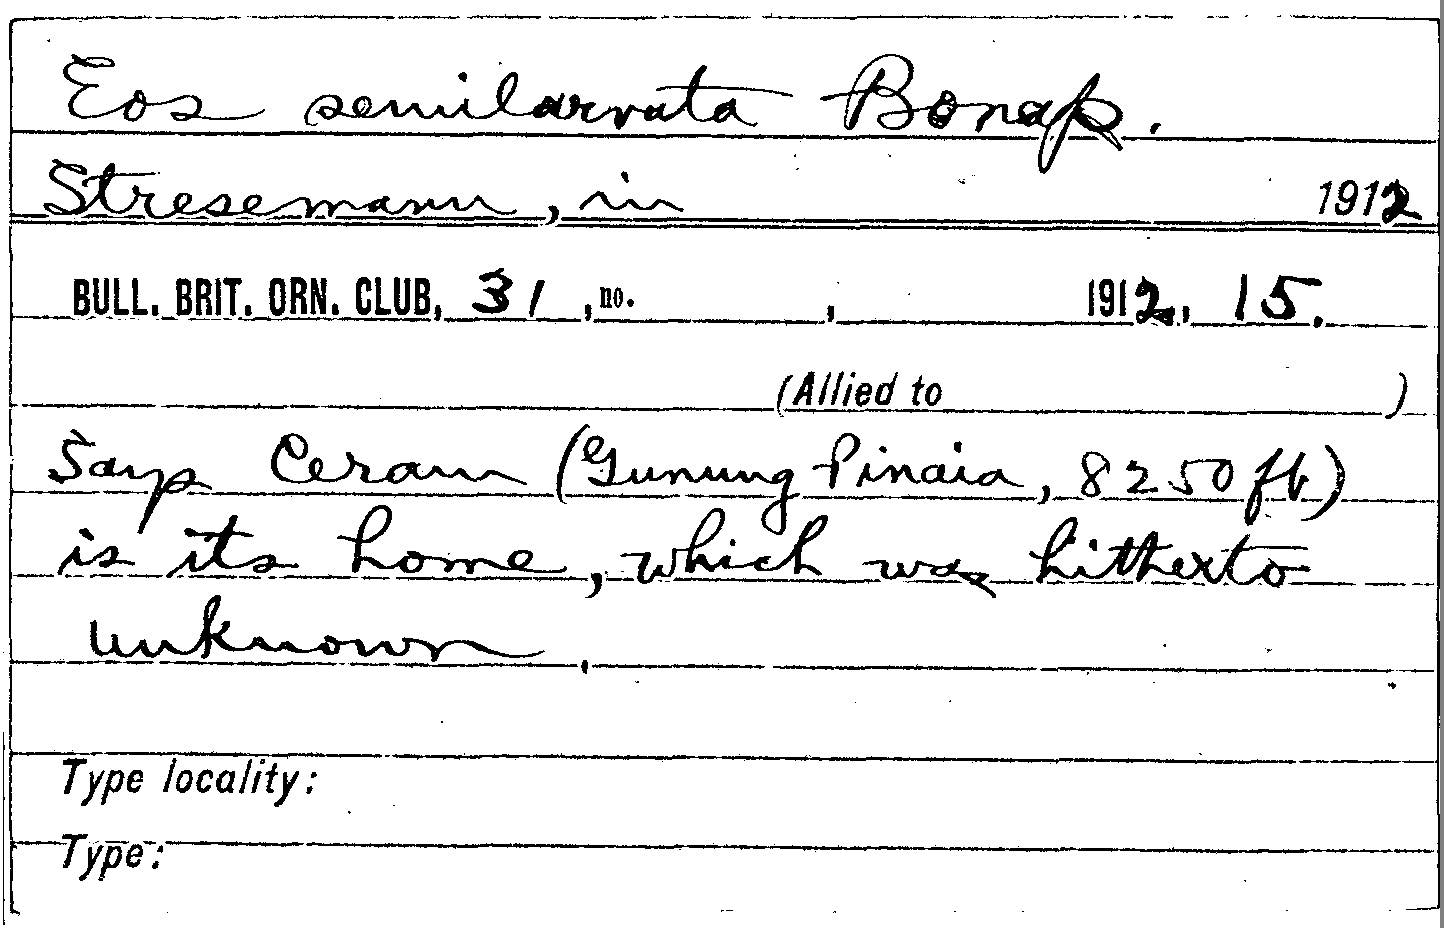 Eos semilarvata Bonap.
Stresemann, in 1912
BULL. BRIT. ORN. CLUB, 31, no. , 1912, 15.
(Allied to )
Says Ceram (Gunung Pinaia, 8250 ft)
is its home, which was hitherto
unknown.
Type locality:
Type: